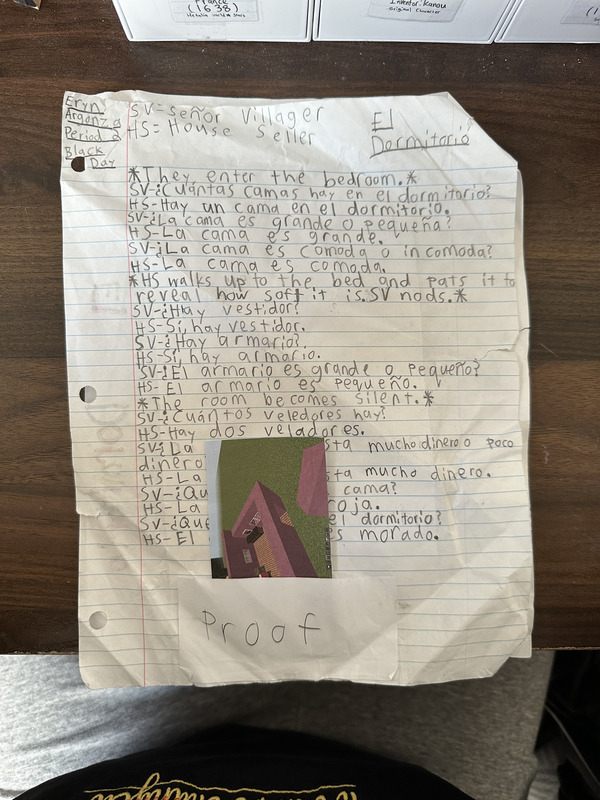 France
(1638)
Hetalia World Stars
Inventor: Kanou
Original Character
Eryn
Argonza
Period 2
Black
Day
SV=Señor Villager
HS=House Seller
El
Dormitorio
*They enter the bedroom.*
SV-¿Cuántas camas hay en el dormitorio?
HS-Hay un cama en el dormitorio.
SV-¿La cama es grande o pequeña?
HS-La cama es grande.
SV-¿La cama es comoda o incomoda?
HS-La cama es comoda.
*HS walks up to the bed and pats it to
reveal how soft it is. SV nods.*
SV-¿Hay vestidor?
HS-Sí, hay vestidor.
SV-¿Hay armario?
HS-Sí, hay armario.
SV-¿El armario es grande o pequeño?
HS-El armario es pequeño.
*The room becomes silent.*
SV-¿Cuántos veledores hay?
HS-Hay dos veladores.
SV-¿La sta mucho dinero o poco
dinero
HS-La sta mucho dinero.
SV-¿Qu cama?
HS-La oja.
SV-¿Qué el dormitorio?
HS-El s morado.
Proof